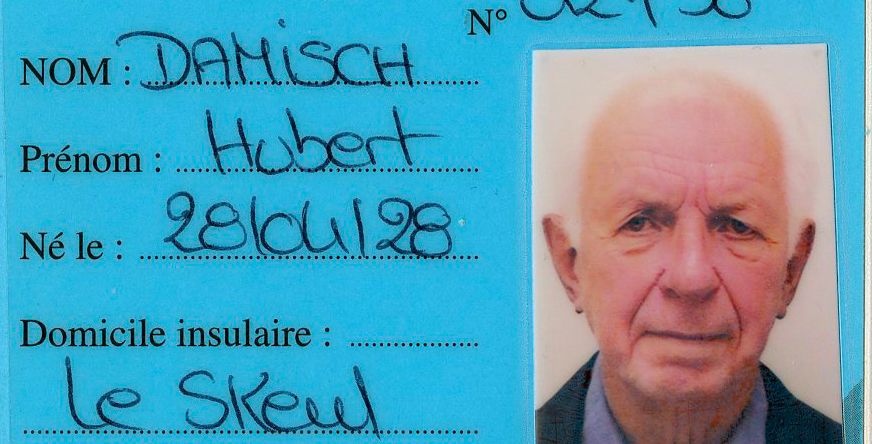 N°
NOM : DAMISCH
Prénom : Hubert
Né le : 28/04/28
Domicile insulaire :
Le Skeul